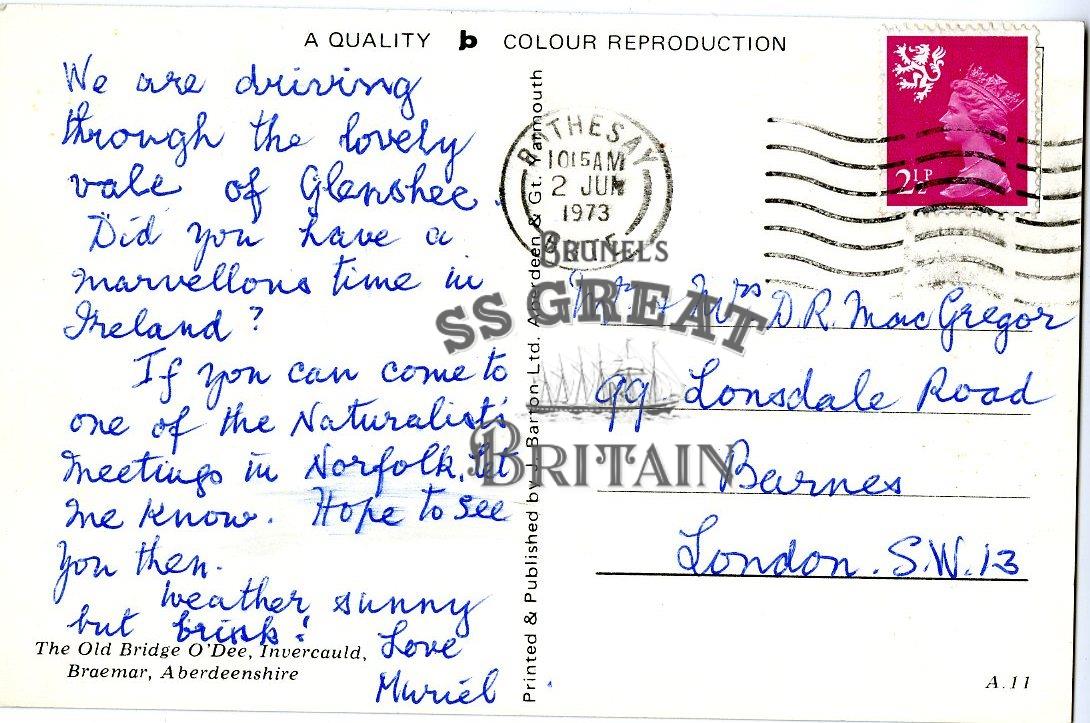 A QUALITY b COLOUR REPRODUCTION
We are driving
through the lovely
vale of Glenshee.
Did you have a
marvellous time in
Ireland?
If you can come to
one of the Naturalist's
Meetings in Norfolk, let
me know. Hope to see
you then.
Weather sunny
but brisk!
Love
Muriel
The Old Bridge O'Dee, Invercauld,
Braemar, Aberdeenshire
Printed & Published by J. Barton Ltd. Aberdeen & Gt. Yarmouth
ROTHESAY
10 15 AM
2 JUN
1973
BUTE
2½P
BRUNEL'S
SS GREAT
BRITAIN
Mr & Mrs D.R. MacGregor
99. Lonsdale Road
Barnes
London. S.W.13
A.11